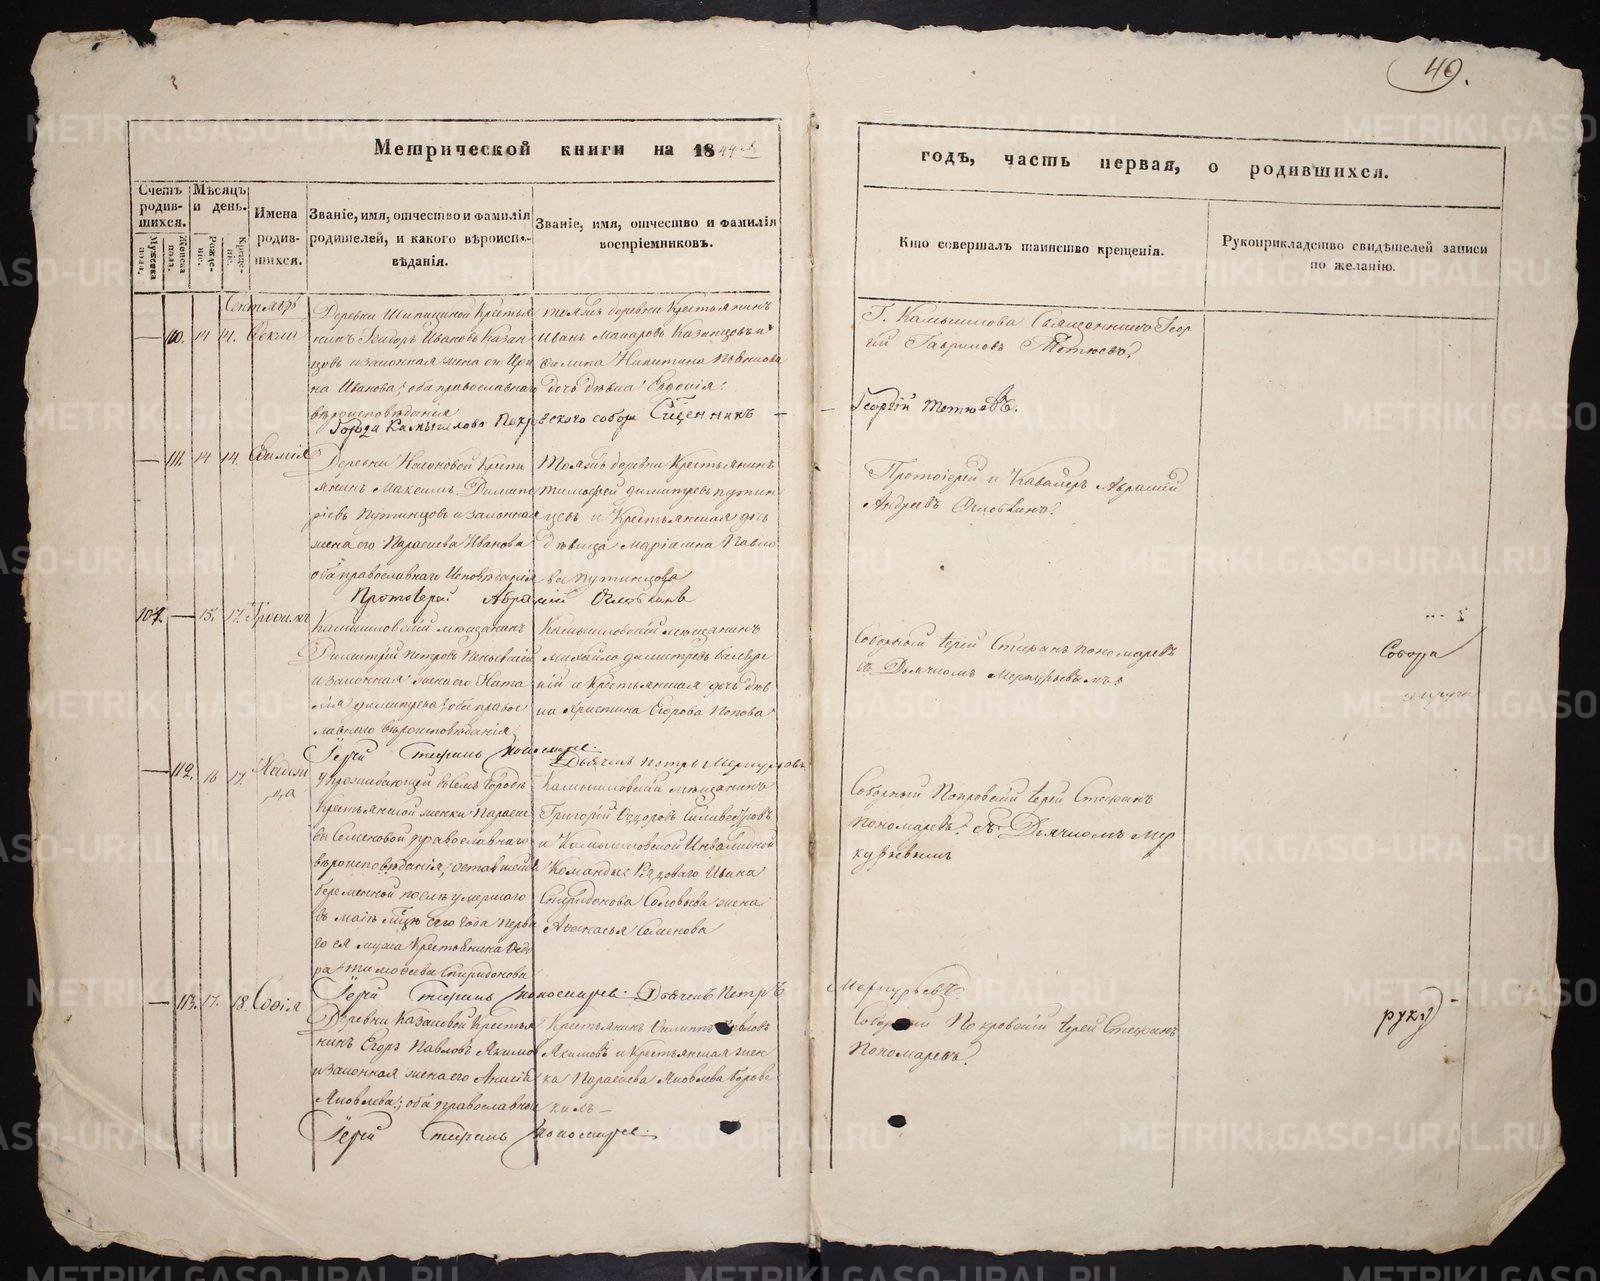 49.
Метрической книги на 1844й
годъ, часть первая, о родившихся.
Счетъ родившихся.
Мужеска пола.
Женска пола.
Мѣсяцъ и день.
Рожденіе.
Крещеніе.
Имена родившихся.
Званіе, имя, отчество и фамилія родителей, и какого вѣроисповѣданія.
Званіе, имя, отчество и фамилія воспріемниковъ.
Кто совершалъ таинство крещенія.
Рукоприкладство свидѣтелей записи по желанію.
Сентябрь
— 110. 14 14. Ѳекла
Деревни Шипициной Крестья
нинъ Ѳедоръ Ивановъ Казан
цовъ и законная жена его Ири
на Иванова; оба православнаго
вѣроисповѣданія
тояжъ деревни Крестьянинъ
Иванъ Макаровъ Казанцовъ и
Никитина
дочь дѣвка Евдокія.
Г. Камышлова Священникъ Геор
гій Гавриловъ
Города Камышлова Покровскаго собора Сщенникъ —
— Георгій
— 111. 14 14.
Деревни Крестьянинъ Максимъ Димит
ріевъ Путинцовъ и законная
жена его Параскева Иванова
оба православнаго Исповѣданія
Тояжъ деревни Крестьянинъ
Тимофей Димитревъ Путин
цевъ и Крестьянская дочь
дѣвица Маріамна Павло
ва Путинцова
Протоіерей и Кавалеръ Аврамій
Андреевъ
Протоіерей Аврамій
104. — 15. 17. Трофимъ
Камышловскій мѣщанинъ
Димитрій Петровъ
и законная жена его Ната
лія Димитрева; оба правос
лавнаго вѣроисповѣданія
Камышловскій мѣщанинъ
Михайло Димитревъ
и Крестьянская дочь дѣв
ка Христина Егорова Попова
Соборный Іерей Стефанъ Пономаревъ
съ Дьячкомъ Меркурьевымъ.
Собора
Іерей Стефанъ Пономаревъ.
Дьячекъ Петръ Меркурьевъ
— 112. 16 17.
У проживающей въ семъ Городѣ
Крестьянской женки Параске
вы Семеновой православнаго
вѣроисповѣданія, оставшейся
беременной послѣ умершаго
въ маіѣ мцѣ сего года перва
го ея мужа Крестьянина Ѳедо
ра Тимоѳеева Спиридонова
Камышловскій мѣщанинъ
Григорій Ѳедоровъ Селиверстровъ
и Камышловской Инвалидной
Команды Рядоваго Ивана
Спиридонова Соловьева жена
Аѳанасья Семенова
Соборный Покровскій Іерей Стефанъ
Пономаревъ съ Дьячкомъ Мер
курьевымъ
Іерей Стефанъ Пономаревъ. Дьячекъ Петръ
Меркурьевъ.
— 113. 17. 18. Софія
Деревни Казаковой Крестья
нинъ Егоръ Павловъ Якимов
и законная жена его Анисія
Яковлева; оба православнаго
Крестьянинъ Филиппъ Павловъ
Якимовъ и Крестьянская жен
ка Параскева Яковлева
Соборный Покровскій Іерей Стефанъ
Пономаревъ
руку
Іерей Стефанъ Пономаревъ.
METRIKI.GASO-URAL.RU